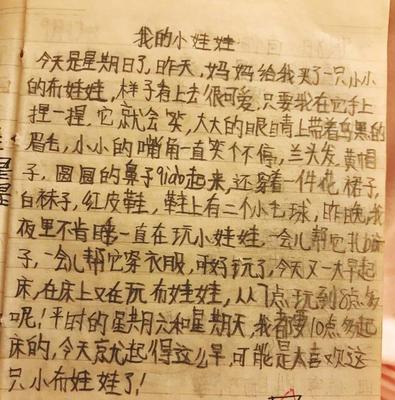 我的小娃娃
今天是星期日了,昨天,妈妈给我买了一只小小
的布娃娃,样子看上去很可爱,只要我在它手上
捏一捏,它就会笑,大大的眼睛上带着乌黑的
眉毛,小小的嘴角一直笑个不停,兰头发,黄帽
子,圆圆的鼻子qiao起来,还穿着一件花裙子,
白袜子,红皮鞋,鞋上有二个小毛球,昨晚,我
夜里不肯睡一直在玩小娃娃,一会儿帮它扎子
子,一会儿帮它穿衣服,可好玩了,今天又一大早起
床,在床上又在玩布娃娃,从7点玩到8点多
呢!平时的星期六和星期天,我都要10点多起
床的,今天就起得这么早,可能是太喜欢这
只小布娃娃了!